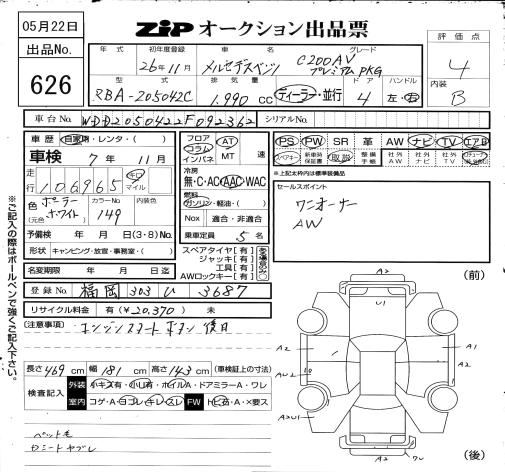 05月22日
ZIP オークション出品票
出品No.
626
年式 初年度登録 車名 グレード
26年11月 メルセデスベンツ C200AV
プレミアムPKG
評価点
4
型式 排気量 ドア ハンドル
RBA-205042C 1,990 cc ディーラー・並行 4 左・右
内装
B
車台No. WDD2050422F092362 シリアルNo.
車歴 自家用・レンタ・( )
車検 7年 11月
走行 106965 キロ マイル
色 (元色) ポーラーホワイト カラーNo. 149 内装色
予備検 年 月 日(3・8)No.
形状 キャンピング・放宣・事務室・( )
名変期限 年 月 日迄
フロア コラム インパネ AT MT 速
冷房 無・C・AC AAC・WAC
燃料 ガソリン・軽油・( )
Nox 適合・非適合
乗車定員 5名
スペアタイヤ[有]
ジャッキ[有]
工具[有]
AWロックキー[有]
PS PW SR 革 AW ナビ TV エアB
スペアキー 新車時保証書 取説 整備手帳 社外AW 社外ナビ 社外TV
※上記太枠内は標準装備品
セールスポイント
ワンオーナー
AW
登録No. 福岡 303 い 3687
リサイクル料金 有(¥20,370) 未
(注意事項) エンジンスタートボタン 後日
長さ 469 cm 幅 181 cm 高さ 143 cm (車検証上の寸法)
検査記入 外装 小キズ有・小凹有・ホイルA・ドアミラーA・ワレ
室内 コゲ・A・ヨゴレ・キレ・スレ FW トビ石・A・×要ス
ペット毛
シートヤブレ
※ご記入の際はボールペンで強くご記入下さい。
(前)
A2
U1
A2 A1
AU2 A2
(後)